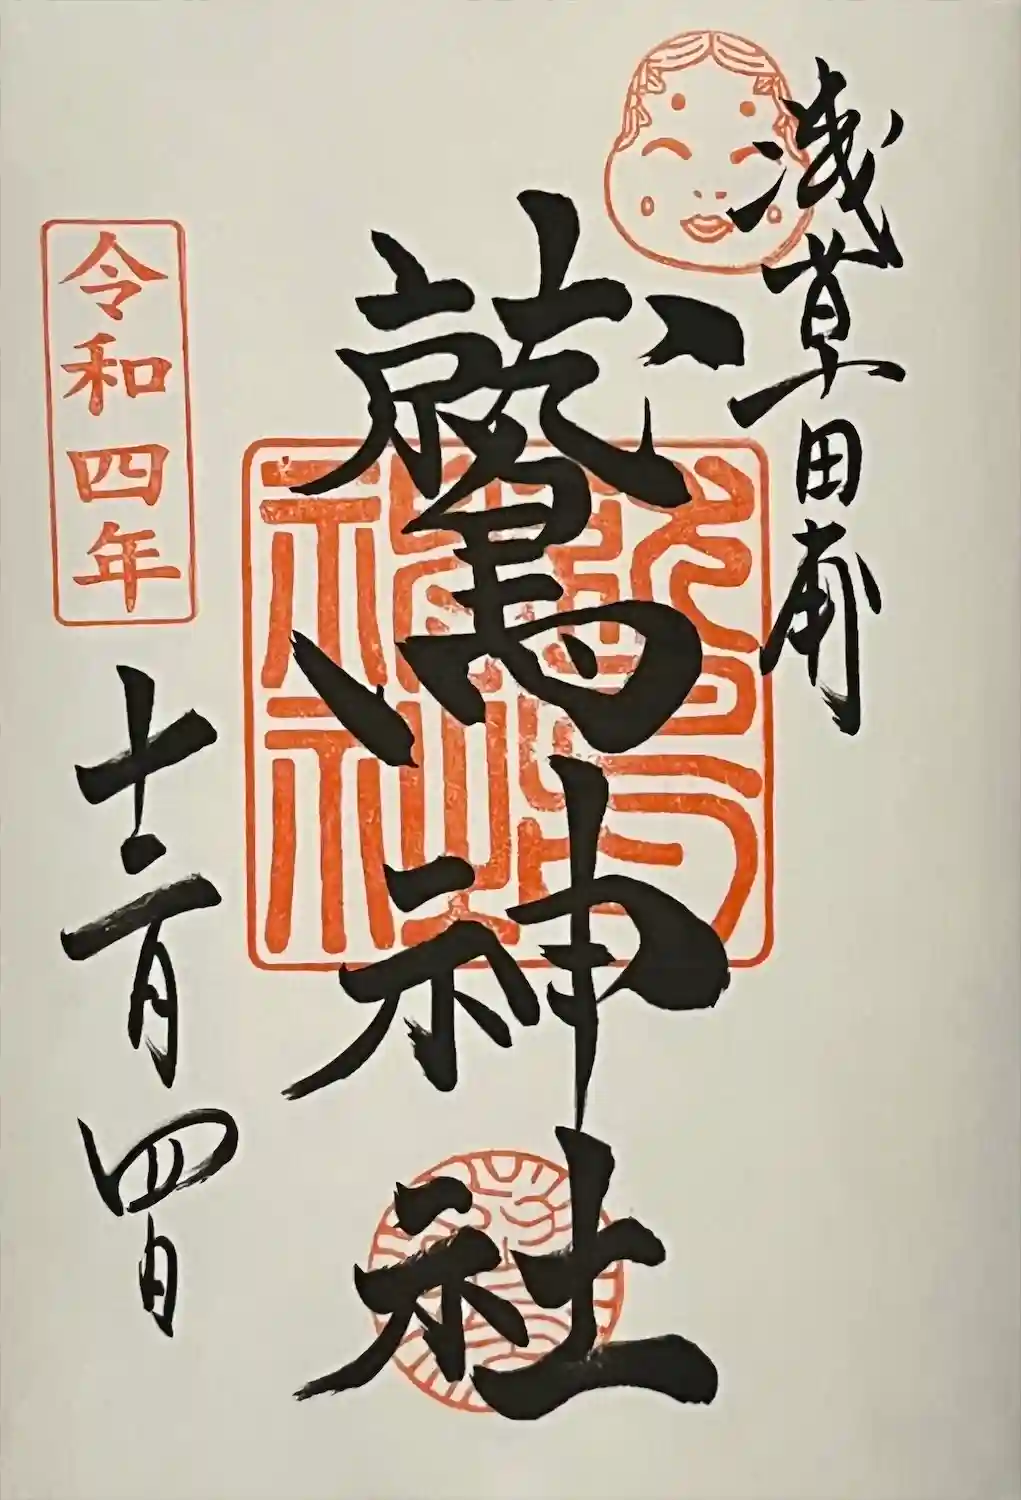 浅草田甫
鷲神社
鷲神社
令和四年
十二月四日